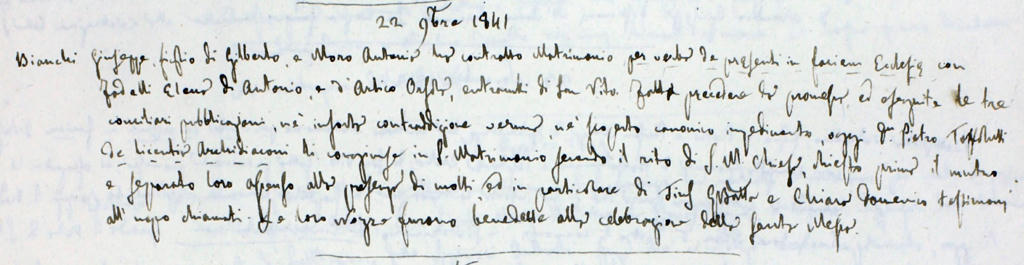 22 9bre 1841
Bianchi Giuseppe figlio di Gilberto, e Moro Antonia ha contratto Matrimonio per verba de presenti in faciem Ecclesiæ con
Zadelli Elena di Antonio, e d'Artico Orsola, entrambi di San Vito. Fatte precedere le promesse, ed eseguite le tre
conciliari pubblicazioni, nè insorta contraddizione veruna nè scoperto canonico impedimento, oggi Dn Pietro
de licentia Archidiaconi li congiunse in S. Matrimonio secondo il rito di S. M. Chiesa, chiesto prima il mutuo
e separato loro assenso alla presenza di molti, ed in particolare di GBatta e Chiaro Domenico testimonj
all'uopo chiamati. Le loro nozze furono benedette alla celebrazione della Santa Messa.